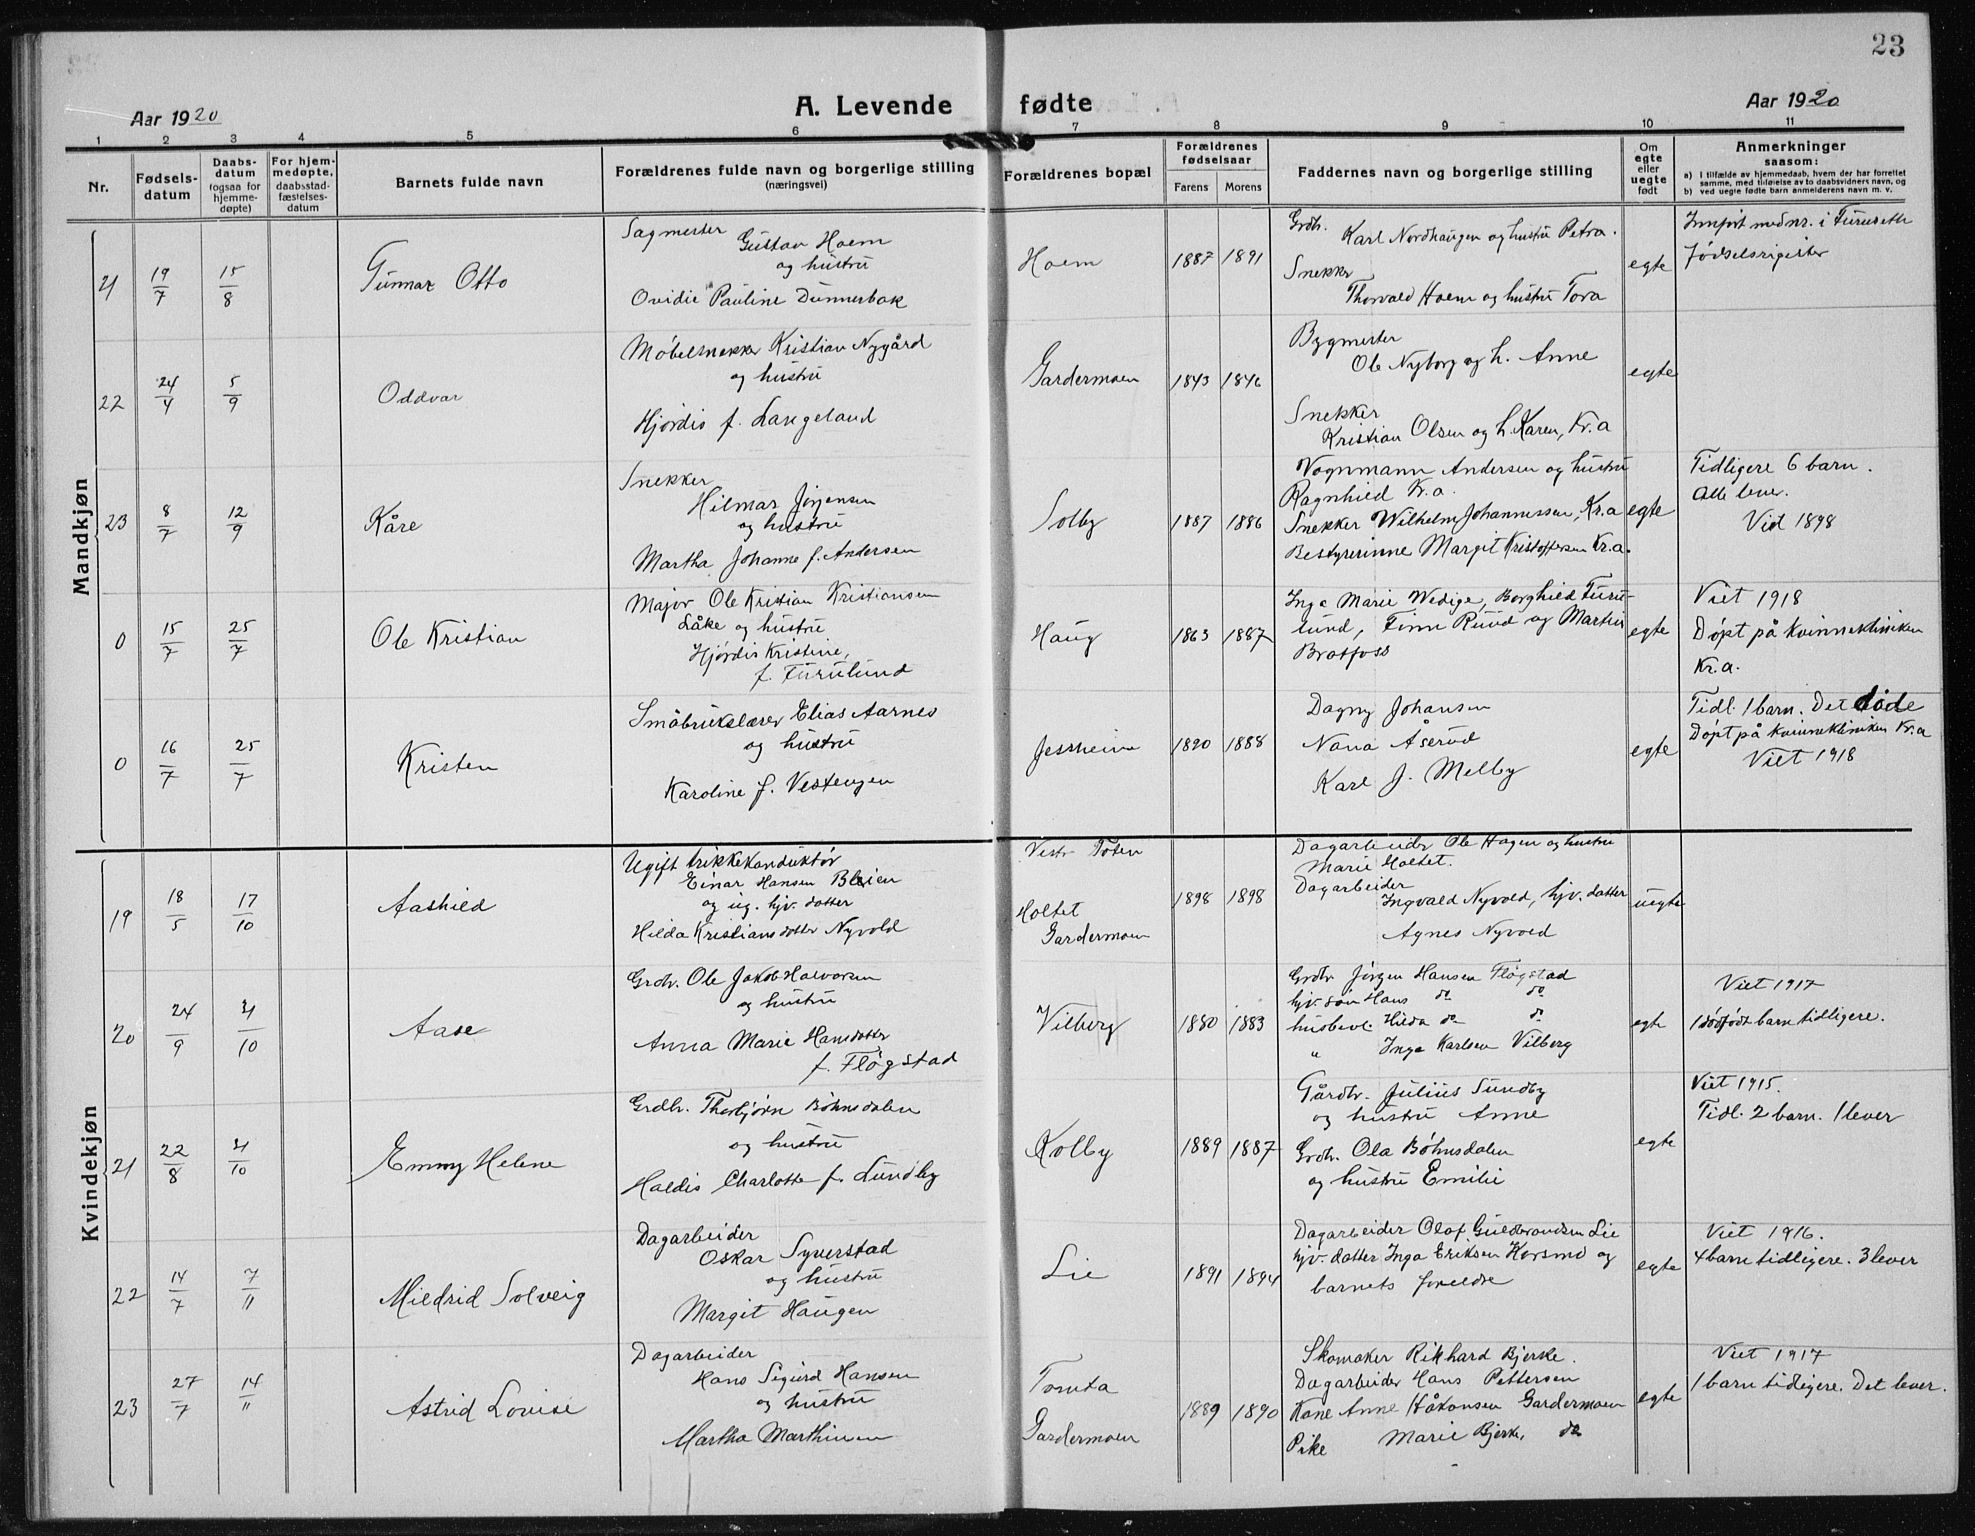 23
Aar 1920
A. Levende fødte
Aar 1920
1 2 3 4 5 6 7 8 9 10 11
Nr.
Fødsels-
datum
Daabs-
datum
(ogsaa for
hjemme-
døpte)
For hjem-
medøpte,
daabsstad-
fæstelses-
datum
Barnets fulde navn
Forældrenes fulde navn og borgerlige stilling
(næringsvei)
Forældrenes bopæl
Forældrenes
fødselsaar
Farens Morens
Faddernes navn og borgerlige stilling
Om
egte
eller
uegte
født
Anmerkninger
saasom:
a) i tilfælde av hjemmedaab, hvem der har forrettet
samme, med tilføielse av to daabsvidners navn, og
b) ved uegte fødte barn anmelderens navn m. v.
Mandkjøn
21
19/7
15/8
Gunnar Otto
Sagmester
Gustav Hoem
og hustru
Ovidie Pauline Dunnerbak
Hoem
1887 1891
Grdbr.
Karl Nordhaugen og hustru Petra.
Snekker
Thorvald Hoem og hustru Tora
egte
Innført med nr. i Furuseth
fødselsrigister
22
24/4
5/9
Oddvar
Møbelsnekker Kristian Nygård
og hustru
Hjørdis f. Langeland
Gardermoen
1843 1846
Bygmester
Ole Nyborg og h. Anne
Snekker
Kristian Olsen og h. Karen, Kr.a
egte
23
8/7
12/9
Kåre
Snekker
Hilmar Jørgensen
og hustru
Martha Johanne f. Andersen
Solby
1887 1886
Vognmann Andersen og hustru
Ragnhild Kr.a.
Snekker Wilhelm Johannessen, Kr.a
Bestyrerinne Margit Kristoffersen Kr.a.
egte
Tidligere 6 barn.
Alle lever.
Vid 1898
0
15/7
25/7
Ole Kristian
Major Ole Kristian Kristiansen
Låke og hustru
Hjørdis Kristine,
f. Furulund
Haug
1863 1887
Inga Marie Wedige, Borghild Furu-
lund, Finn Ruud og Martin
Bratfoss
egte
Viet 1918
Døpt på Kvinneklinikken
Kr.a.
0
16/7
25/7
Kristen
Småbrukslærer Elias Aarnes
og hustru
Karoline f. Vestengen
Jessheim
1890 1888
Dagny Johansen
Nana Åserud
Karl J. Melby
egte
Tidl. 1 barn. Det døde
Døpt på kvinneklinikken Kr.a
Viet 1918
Kvindekjøn
19
18/5
17/10
Aashild
Ugift trikkekonduktør
Einar Hansen Bleien
og ug. hjv. datter
Hilda Kristiansdatter Nyvold
Vestr Toten
Holtet
Gardermoen
1898 1898
Dagarbeider Ole Hagen og hustru
Marie Holtet.
Dagarbeider
Ingvald Nyvold, hjv. datter
Agnes Nyvold
uegte
20
24/9
31/10
Aase
Grdbr. Ole Jakob Halvorsen
og hustru
Anna Marie Hansdatter
f. Fløgstad
Vilberg
1880 1883
Grdbr Jørgen Hansen Fløgstad
hjv. søn Hans do do
husbest. Hilda do do
" Inga Karlsen Vilberg
egte
Viet 1917
1 dødfødt barn tidligere.
21
22/8
31/10
Emmy Helene
Grdbr. Thorbjørn Bøhnsdalen
og hustru
Haldis Charlotte f. Sundby
Kolby
1889 1887
Gårdbr. Julius Sundby
og hustru Anne
Grdbr. Ola Bøhnsdalen
og hustru Emilie
egte
Viet 1915.
Tidl. 2 barn. 1 lever
22
14/7
7/11
Mildrid Solveig
Dagarbeider
Oskar Syverstad
og hustru
Margit Haugen
Lie
1891 1894
Dagarbeider Olaf Guldbrandsen Lie
hjv. datter Inga Eriksen Korsmo og
barnets foreldre
egte
Viet 1916.
4 barn tidligere. 3 lever
23
27/7
14/11
Astrid Lovise
Dagarbeider
Hans Sigurd Hansen
og hustru
Martha Marthinsen
Tomta
Gardermoen
1889 1890
Skomaker Rikhard Bjerke.
Dagarbeider Hans Pettersen
Kone Anne Håkonsen Gardermoen
Pike Marie Bjerke, do
egte
Viet 1917
1 barn tidligere. Det lever.